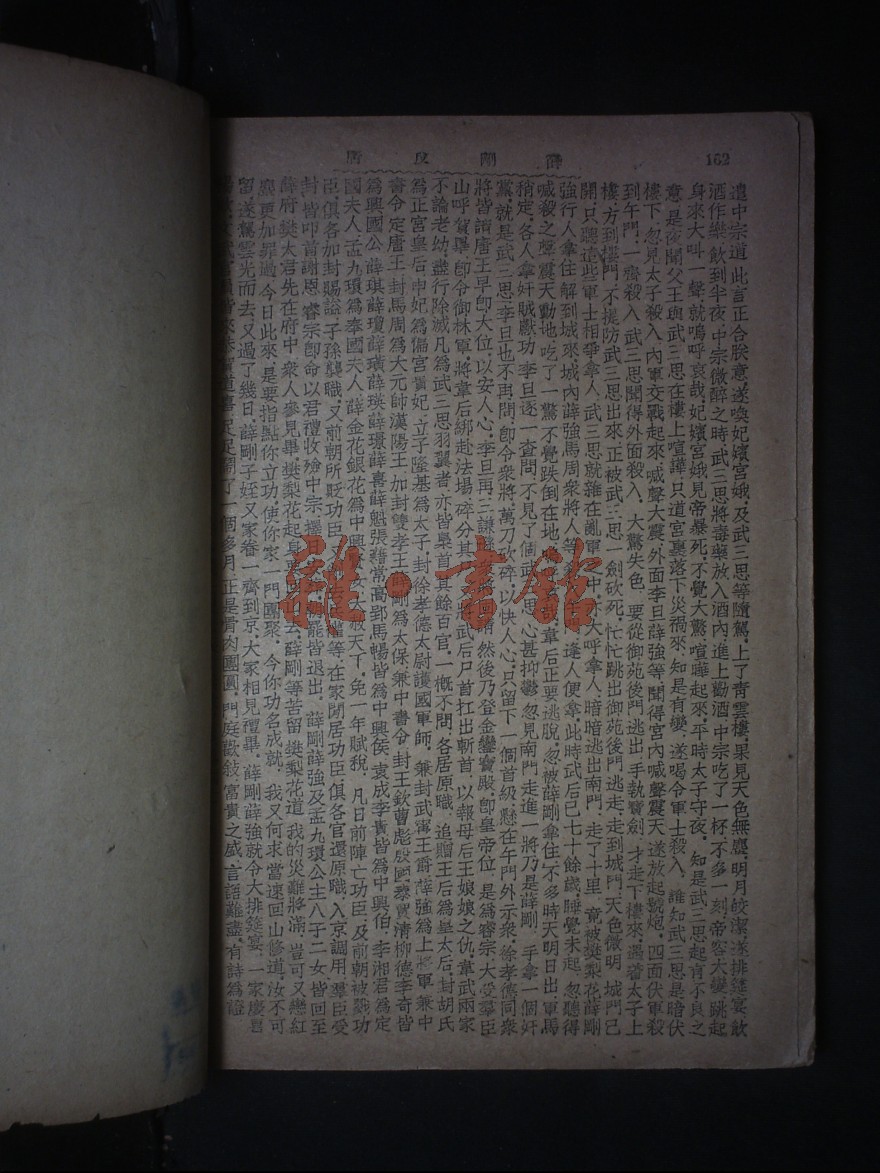 162
薛剛反唐
遣中宗道此言正合朕意遂喚妃嬪宮娥及武三思等隨駕上了靑雲樓果見天色無塵明月皎潔遂排筵宴飲
酒作樂飲到半夜中宗微醉之時武三思將毒藥放入酒內進上勸酒中宗吃了一杯不多一刻帝容大變跳起
身來大叫一聲就嗚呼哀哉妃嬪宮娥見帝暴死不覺大驚喧嘩起來平時太子守夜知是武三思起有不良之
意是夜聞父王與武三思在樓上喧嘩只道宮廳落下災禍來知是有變遂喝令軍士殺入誰知武三思是暗伏
樓下忽見太子殺入內軍交戰起來喊聲大震外面李旦薛強等聞得宮內喊聲震天遂放起號炮四面伏軍殺
到午門一齊殺入武三思聞得外面殺入大驚失色要從御苑後門逃出手執寶劍才走下樓來遇着太子上
樓方到樓門不提防武三思出來正被武三思一劍砍死忙忙跳出御苑後門逃走走到城門天色微明城門已
開只聽這些軍士相爭拿人武三思就雜在亂軍之中大呼拿人暗暗逃出南門走了十里竟被樊梨花薛剛
強行人拿住解到城來城內薛強馬周衆將人等逢人便拿此時武后已七十餘歲睡覺未起忽聽得
喊殺之聲震天動地吃了一驚不覺跌倒在地韋后正要逃脫忽被薛剛拿住不多時天明日出軍馬
稍定各人拿奸賊獻功李旦逐一查問不見了個武三思心甚抑鬱忽見南門走進一將乃是薛剛手拿一個奸
黨就是武三思李旦也不再問卽令衆將萬刀砍碎以快人心只留下一個首級懸在午門外示衆徐孝德同衆
將皆請唐王早卽大位以安人心李旦再三謙然後乃登金鑾寶殿卽皇帝位是爲睿宗大受羣臣
山呼賀畢卽令御林軍將韋后綁赴法場碎分其將武后尸首扛出斬首以報母后王娘娘之仇韋武兩家
不論老幼盡行除滅凡爲武三思羽翼者亦皆梟首其餘百官一槪不問各居原職追贈王后爲皇太后封胡氏
爲正宮皇后申妃爲偏宮貴妃立子隆基爲太子封徐孝德太尉護國軍師兼封武甯王爵薛強爲上將軍兼中
書令定唐王封馬周爲大元帥漢陽王加封雙孝王薛剛爲太保兼中書令封王欽曹彪殷國泰賈清柳德李奇皆
爲興國公薛琪薛瓊薛璜薛瑛薛璟薛喜薛魁張籍常高郢馬暢皆爲中興侯袁成李貴皆爲中興伯李湘君爲定
國夫人孟九環爲奉國夫人薛金花銀花爲中興女大赦天下免一年賦稅凡日前陣亡功臣及前朝被戮功
臣俱各加封賜諡子孫襲職又前朝所貶功臣等在家閒居功臣俱各官還原職入京調用羣臣受
封皆叩首謝恩睿宗卽命以君禮收殮中宗擇日罷皆退出薛剛薛強及孟九環公主八子二女皆回至
薛府樊太君先在府中衆人參見畢樊梨花起身去薛剛等苦留樊梨花道我的災難將滿豈可又戀紅
塵更加罪過今日此來是要指點你立功使你家一門團聚今你功名成就我又何求當速回山修道汝不可
留遂駕雲光而去又過了幾日薛剛子姪又家眷一齊到京大家相見禮畢薛剛薛強就令大排筵宴一家慶
皆來道喜足足鬧了一個多月正是骨肉團圓門庭歡敍富貴之盛言語難盡有詩爲證
雜·書館